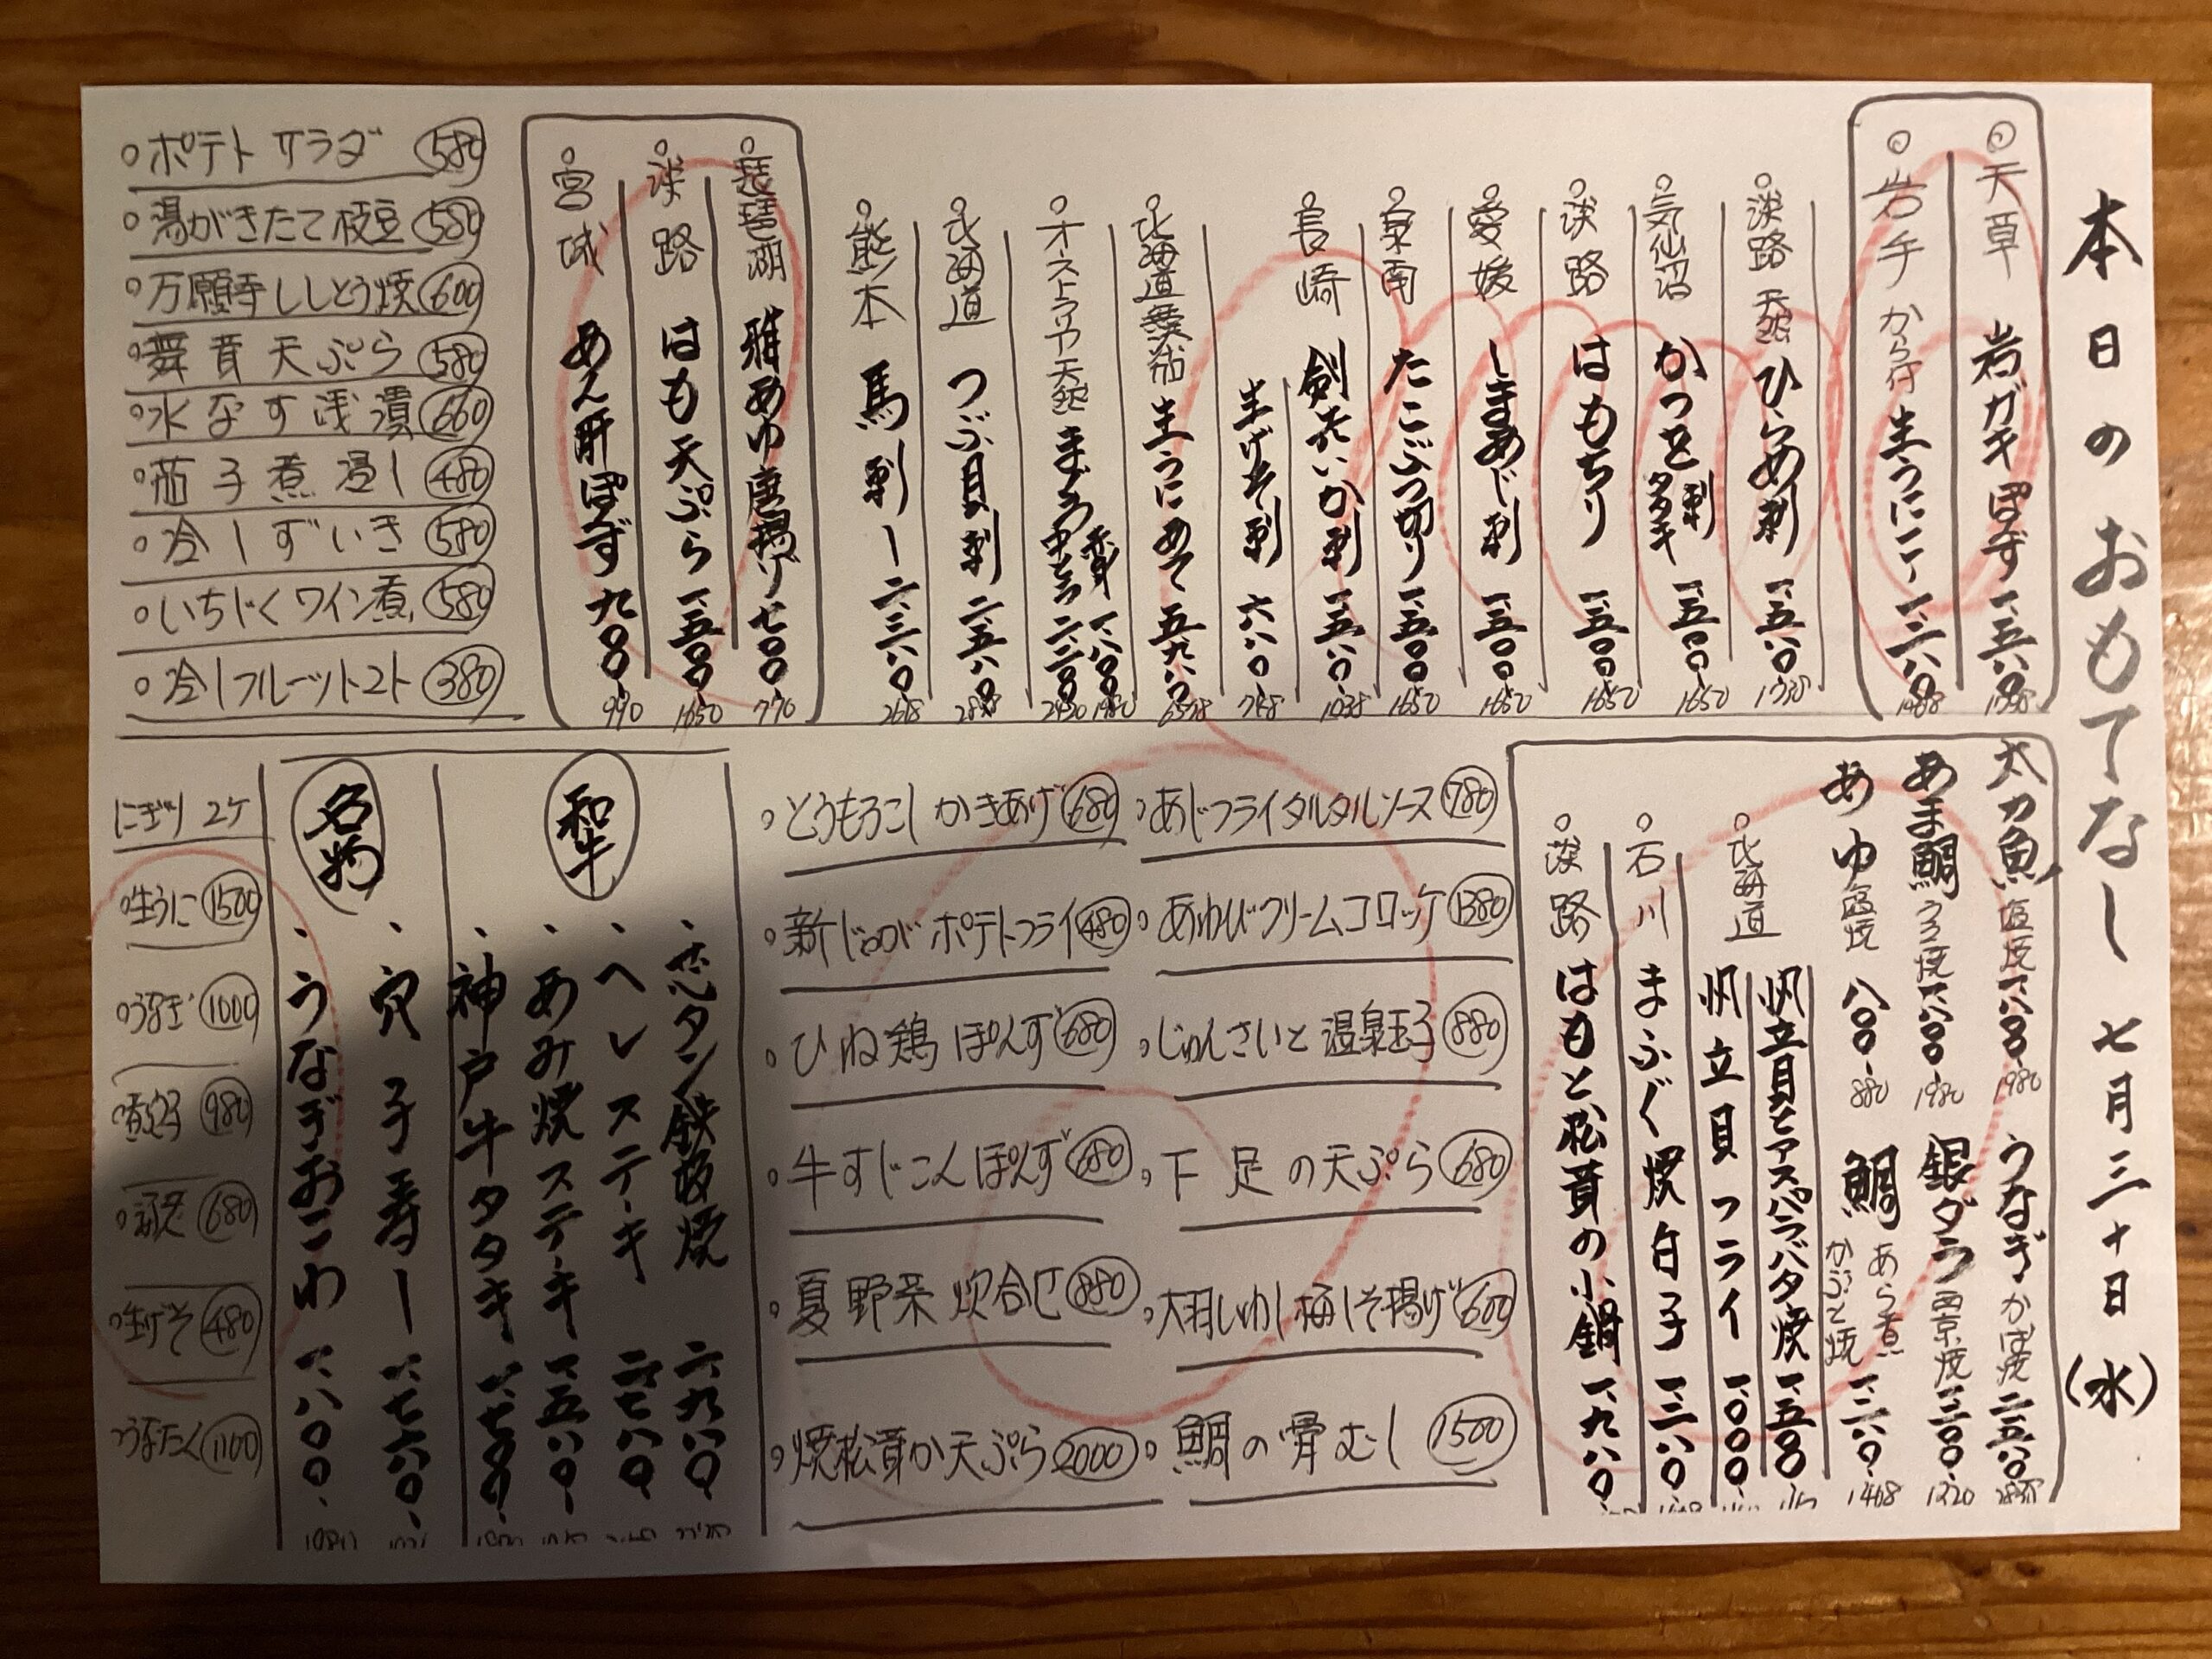 本日のおもてなし 七月三十日(水)
天草 岩ガキぽず 一、五八〇
岩手 から付 生うに 一、二八〇
淡路 天然 ひらめ刺 一、五八〇 1738
気仙沼 かつを 刺 タタキ 一、五〇〇 1650
淡路 はもちり 一、五〇〇 1650
愛媛 しまあじ刺 一、五〇〇 1650
泉南 たこぶつ切り 一、五〇〇 1650
長崎 剣先いか刺 一、五八〇
生げそ刺 六八〇 748
北海道 生うに 五、九八〇 6578
オーストラリア天然 まぐろ 赤身 一、八〇〇 1980
中とろ 二、二〇〇 2420
北海道 つぶ貝刺 二、五八〇
熊本 馬刺し 二、三八〇 2618
琵琶湖 稚あゆ唐揚げ 七〇〇 770
淡路 はも天ぷら 一、五〇〇 1650
宮城 あん肝ぽんず 九〇〇 990
ポテトサラダ 580
湯がきたて枝豆 580
万願寺ししとう焼 600
舞茸天ぷら 580
水なす浅漬 660
茄子煮浸し 480
冷しずいき 580
いちじくワイン煮 580
冷しフルーツトマト 380
太刀魚 塩焼 一、八〇〇 1980
うなぎ かば焼 二、五八〇
あま鯛 うろこ焼 一、八〇〇 1980
銀ダラ 西京焼 一、二〇〇 1320
あゆ 塩焼 八〇〇 880
鯛 あら煮 かぶと焼 一、二八〇 1408
北海道 帆立貝とアスパラバタ焼 一、五〇〇
帆立貝フライ 一、〇〇〇
石川 まふぐ焼白子 一、二八〇
淡路 はもと松茸の小鍋 一、九八〇
あじフライタルタルソース 780
あわびクリームコロッケ 1380
じゅんさいと温泉玉子 880
下足の天ぷら 680
大羽いわし梅しそ揚げ 600
鯛の骨むし 1500
とうもろこしかきあげ 680
新じゃがポテトフライ 480
ひね鶏ぽんず 680
牛すじこんぽんず 680
夏野菜炊合せ 880
焼松茸か天ぷら 2000
和牛
芯タン鉄板焼 二、九八〇
ヘレステーキ 二、七八〇
あみ焼ステーキ 一、五八〇
神戸牛タタキ 一、七〇〇
名物
穴子寿し 一、七六〇
うなぎおこわ 一、八〇〇
にぎり 2ケ
生うに 1500
うなぎ 1000
煮穴子 980
680
生げそ 480
うなたく 1100